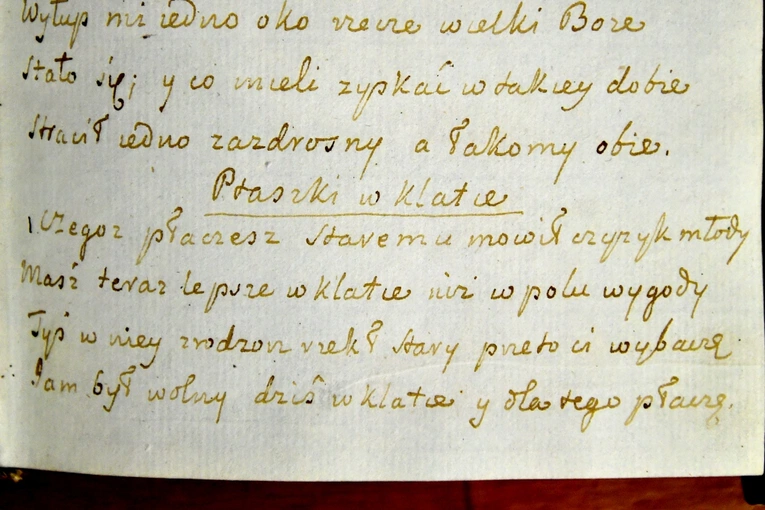 Wyłup mi iedno oko rzecze wielki Boze
Stało się; y co mieli zyskać w takiey dobie
Stracił iedno zazdrosny a łakomy obie.
Ptaszki w klatce
Czegoz płaczesz staremu mowił czyzyk młody
Masz teraz lepsze w klatce niz w polu wygody
Tyś w niey zrodzon rzekł stary przeto ci wybaczę
Jam był wolny dziś w klatce y dla tego płaczę.